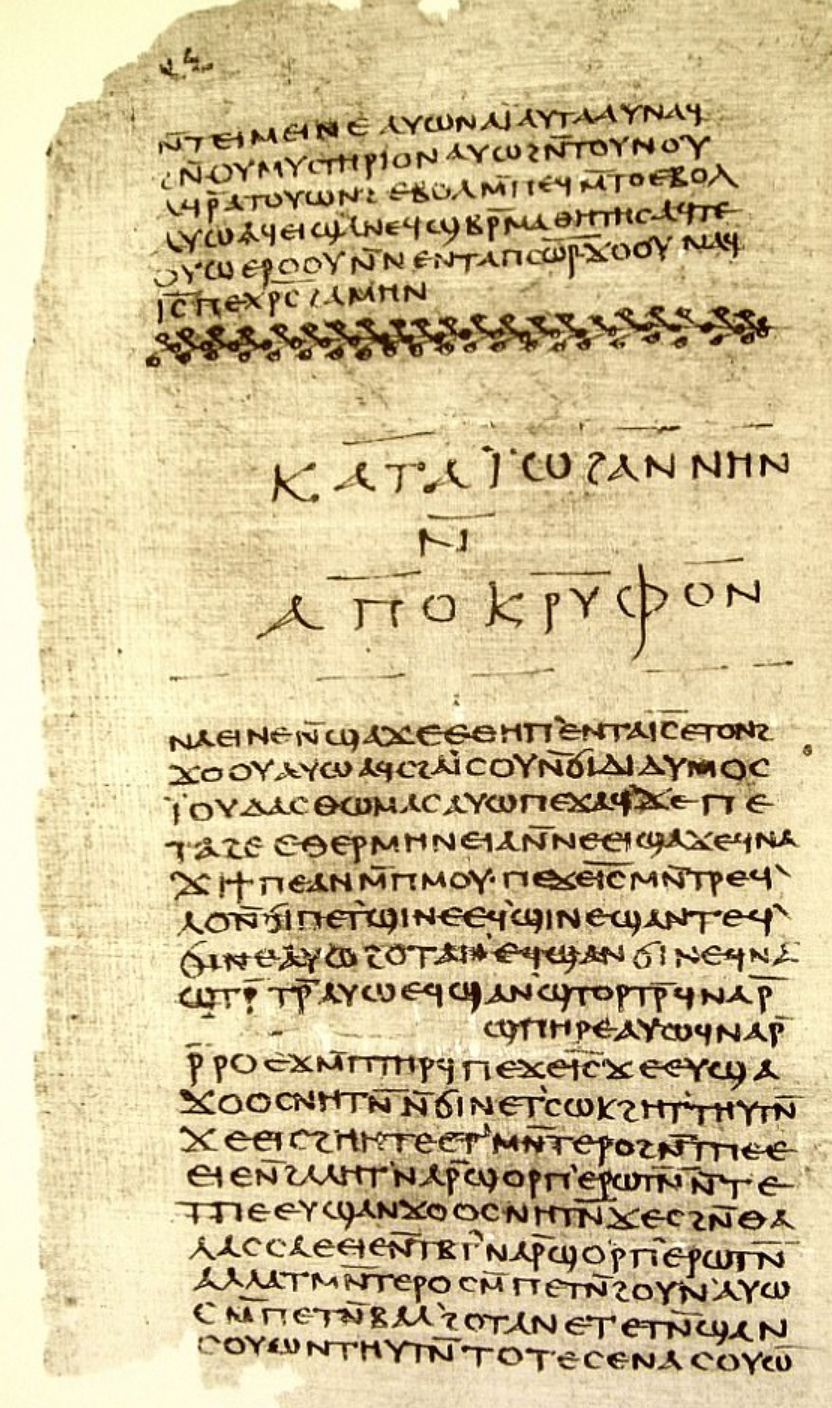 ⲛ̄ⲧⲉⲓⲙⲉⲓⲛⲉ ⲁⲩⲱ ⲛⲁⲓ̈ ⲁⲩⲧⲁⲁⲩ ⲛⲁϥ
ϩⲛ̄ⲟⲩⲙⲩⲥⲧⲏⲣⲓⲟⲛ ⲁⲩⲱ ϩⲛ̄ⲧⲟⲩⲛⲟⲩ
ⲁϥⲣ̄ⲁⲧⲟⲩⲱⲛϩ ⲉⲃⲟⲗ ⲙ̄ⲡⲉϥⲙ̄ⲧⲟ ⲉⲃⲟⲗ
ⲁⲩⲱ ⲁϥⲉⲓ ϣⲁ ⲛⲉϥϣⲃⲣ̄ⲙⲁⲑⲏⲧⲏⲥ ⲁϥⲧⲉ
ⲟⲩⲱ ⲉⲣⲟⲟⲩ ⲛ̄ⲛⲉⲛⲧⲁⲡⲥⲱ̅ⲣ̅ ϫⲟⲟⲩ ⲛⲁϥ
ⲓ̅ⲥ̅ ⲡⲉⲭⲣ̅ⲥ̅ ϩⲁⲙⲏⲛ
ⲕⲁⲧⲁ ⲓ̈ⲱϩⲁⲛⲛⲏⲛ
ⲛ̄
ⲁⲡⲟⲕⲣⲩⲫⲟⲛ
ⲛⲁⲉⲓ ⲛⲉ ⲛ̄ϣⲁϫⲉ ⲉⲑⲏⲡ ⲉⲛⲧⲁ ⲓ̅ⲥ̅ ⲉⲧⲟⲛϩ
ϫⲟⲟⲩ ⲁⲩⲱ ⲁϥⲥϩⲁⲓ̈ⲥⲟⲩ ⲛ̄ϭⲓ ⲇⲓⲇⲩⲙⲟⲥ
ⲓ̈ⲟⲩⲇⲁⲥ ⲑⲱⲙⲁⲥ ⲁⲩⲱ ⲡⲉϫⲁϥ ϫⲉ ⲡⲉ
ⲧⲁϩⲉ ⲉⲑⲉⲣⲙⲏⲛⲉⲓⲁ ⲛ̄ⲛⲉⲉⲓϣⲁϫⲉ ϥⲛⲁ
ϫⲓ ϯⲡⲉ ⲁⲛ ⲙ̄ⲡⲙⲟⲩ· ⲡⲉϫⲉ ⲓ̅ⲥ̅ ⲙⲛ̄ⲧⲣⲉϥ
ⲗⲟ ⲛ̄ϭⲓ ⲡⲉⲧϣⲓⲛⲉ ⲉϥϣⲓⲛⲉ ϣⲁⲛⲧⲉϥ
ϭⲓⲛⲉ ⲁⲩⲱ ϩⲟⲧⲁⲛ ⲉϥϣⲁⲛϭⲓⲛⲉ ϥⲛⲁ
ϣⲧⲣ̄ⲧⲣ̄ ⲁⲩⲱ ⲉϥϣⲁⲛϣⲧⲟⲣⲧⲣ̄ ϥⲛⲁⲣ̄
ϣⲡⲏⲣⲉ ⲁⲩⲱ ϥⲛⲁⲣ̄
ⲣ̄ⲣⲟ ⲉϫⲙ̄ ⲡⲧⲏⲣϥ ⲡⲉϫⲉ ⲓ̅ⲥ̅ ϫⲉ ⲉⲩϣⲁ
ϫⲟⲟⲥ ⲛⲏⲧⲛ̄ ⲛ̄ϭⲓ ⲛⲉⲧⲥⲱⲕ ϩⲏⲧ ⲧⲏⲩⲧⲛ̄
ϫⲉ ⲉⲓⲥϩⲏⲏⲧⲉ ⲉⲧⲙⲛ̄ⲧⲉⲣⲟ ϩⲛ̄ ⲧⲡⲉ ⲉ
ⲉⲓⲉ ⲛ̄ϩⲁⲗⲏⲧ ⲛⲁⲣ̄ϣⲟⲣⲡ ⲉⲣⲱⲧⲛ̄ ⲛ̄ⲧⲉ
ⲧⲡⲉ ⲉⲩϣⲁⲛϫⲟⲟⲥ ⲛⲏⲧⲛ̄ ϫⲉ ⲥϩⲛ̄ ⲑⲁ
ⲗⲁⲥⲥⲁ ⲉⲉⲓⲉ ⲛ̄ⲧⲃⲧ ⲛⲁⲣ̄ϣⲟⲣⲡ ⲉⲣⲱⲧⲛ̄
ⲁⲗⲗⲁ ⲧⲙⲛ̄ⲧⲉⲣⲟ ⲥⲙ̄ⲡⲉⲧⲛ̄ϩⲟⲩⲛ ⲁⲩⲱ
ⲥⲙ̄ⲡⲉⲧⲛ̄ⲃⲁⲗ ϩⲟⲧⲁⲛ ⲉⲧⲉⲧⲛ̄ϣⲁⲛ
ⲥⲟⲩⲱⲛ ⲧⲏⲩⲧⲛ̄ ⲧⲟⲧⲉ ⲥⲉⲛⲁⲥⲟⲩⲱ